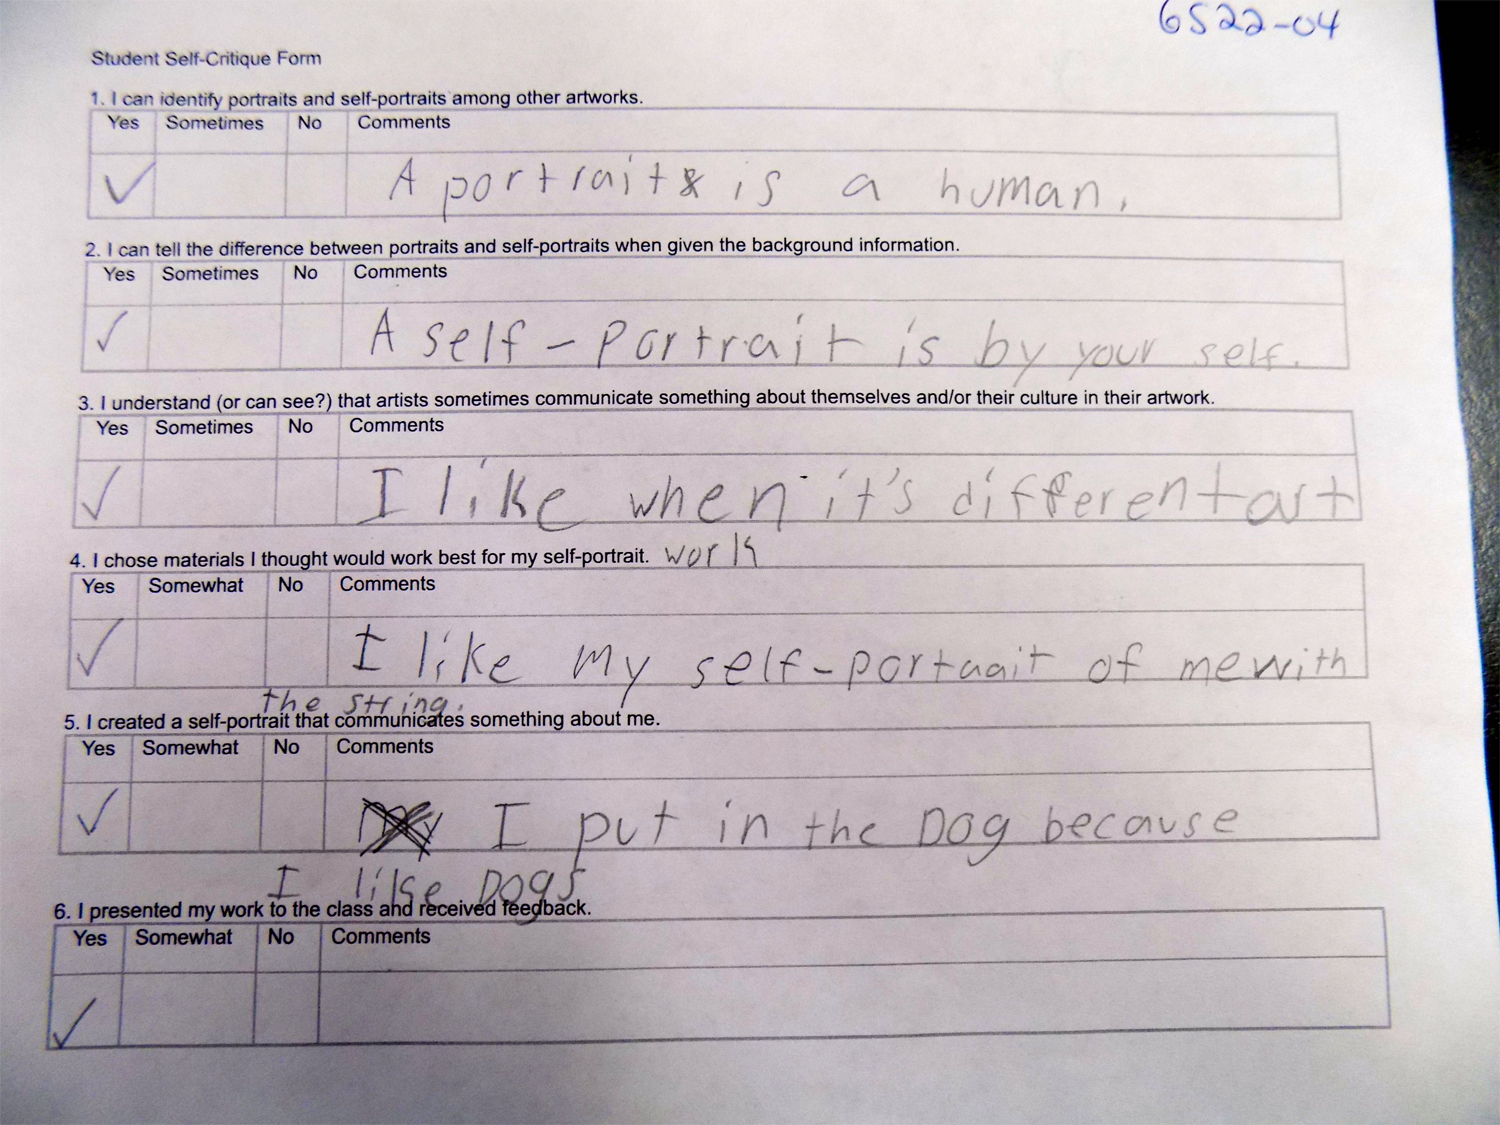 6S22-04
Student Self-Critique Form
1. I can identify portraits and self-portraits among other artworks.
Yes Sometimes No Comments
A portrait is a human.
2. I can tell the difference between portraits and self-portraits when given the background information.
Yes Sometimes No Comments
A self-portrait is by your self.
3. I understand (or can see?) that artists sometimes communicate something about themselves and/or their culture in their artwork.
Yes Sometimes No Comments
I like when it's different art
work
4. I chose materials I thought would work best for my self-portrait.
Yes Somewhat No Comments
I like my self-portrait of me with
the string.
5. I created a self-portrait that communicates something about me.
Yes Somewhat No Comments
I put in the Dog because
I like Dogs
6. I presented my work to the class and received feedback.
Yes Somewhat No Comments